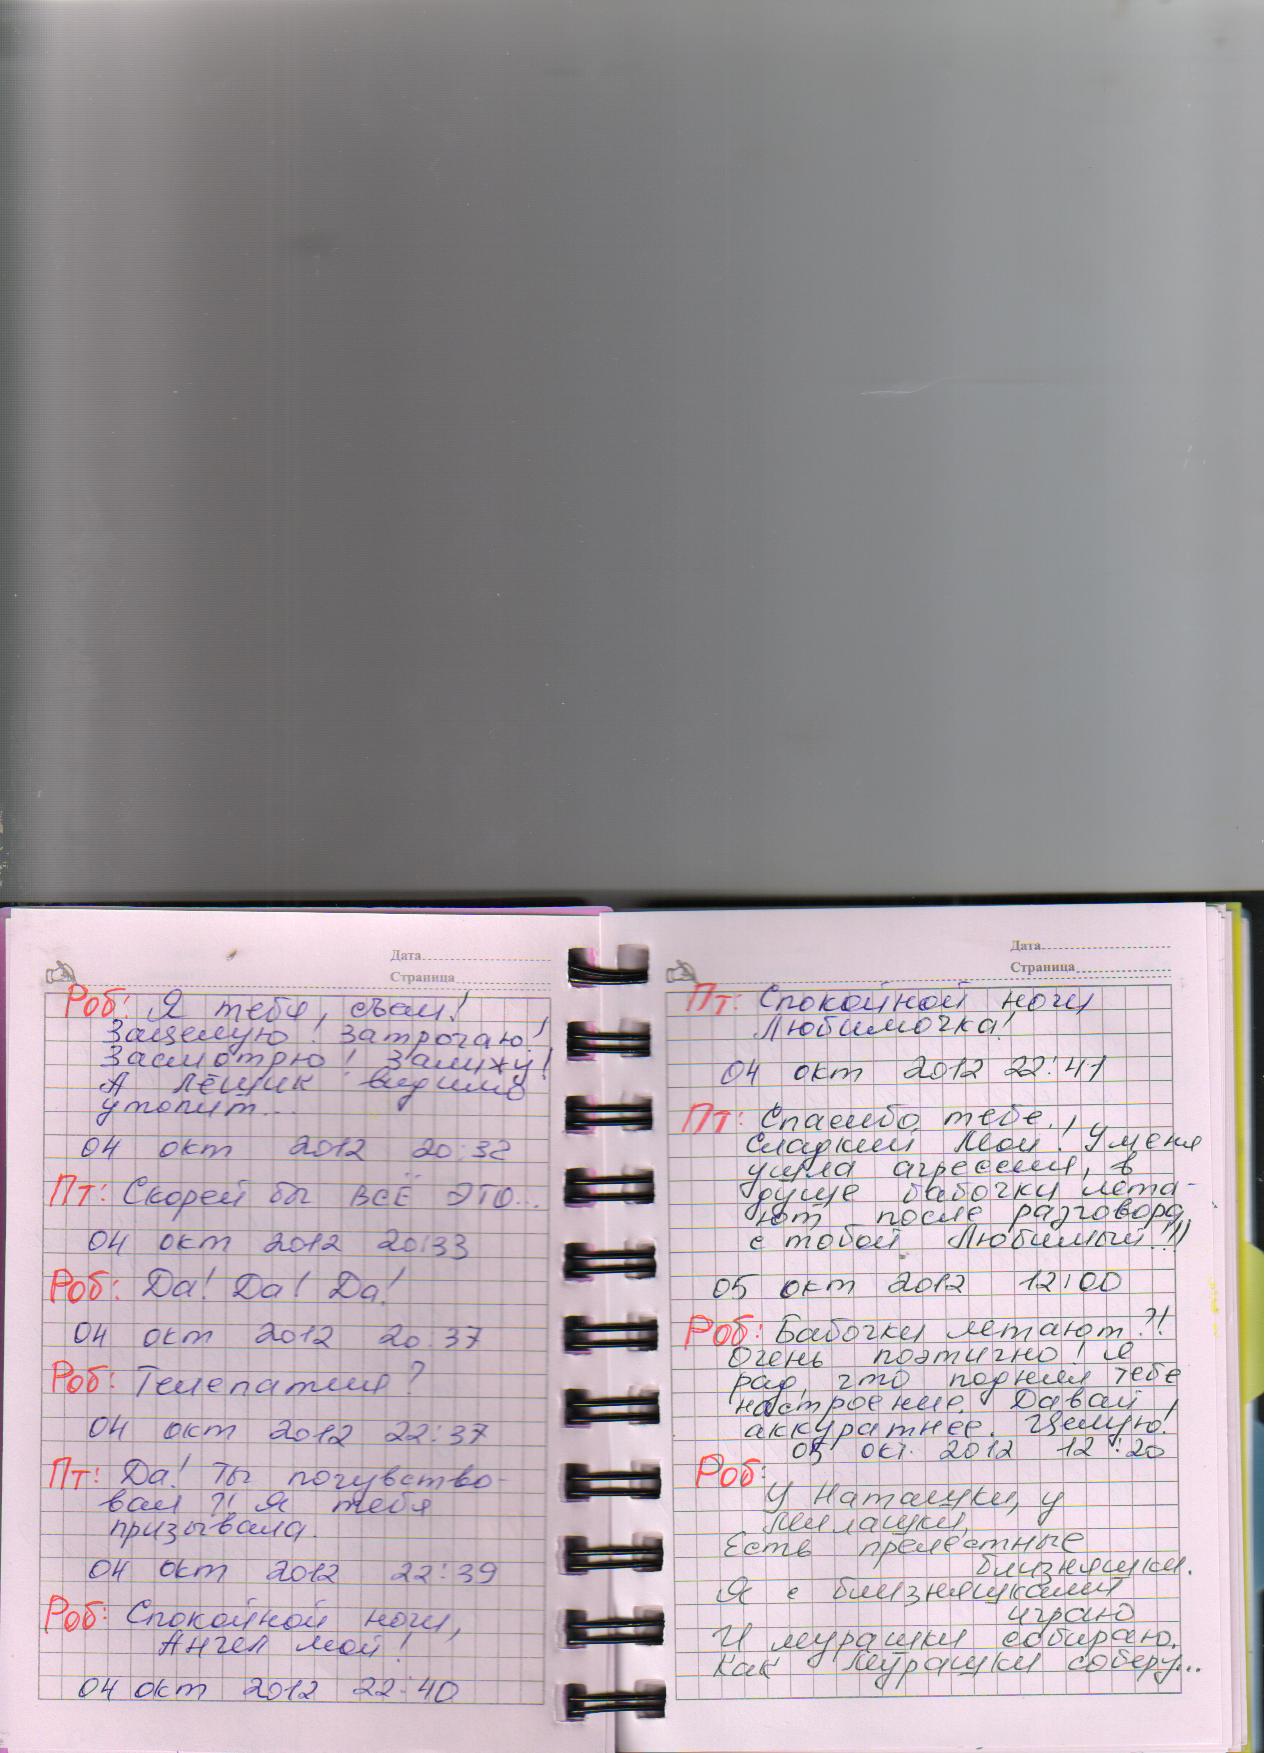 Дата
Страница
Роб: Я тебя, съем!
Зацелую! Затрогаю!
Засмотрю! Залижу!
А Лёшик видимо
утопит...
04 окт 2012 20:32
Пт: Скорей бы ВСЁ ЭТО...
04 окт 2012 20:33
Роб: Да! Да! Да!
04 окт 2012 20:37
Роб: Телепатия?
04 окт 2012 22:37
Пт: Да! Ты почувство-
вал?! Я тебя
призывала.
04 окт 2012 22:39
Роб: Спокойной ночи,
Ангел мой!
04 окт 2012 22:40
Дата
Страница
Пт: Спокойной ночи
Любимочка!
04 окт 2012 22:41
Пт: Спасибо тебе,
Сладкий Мой! У меня
ушла агрессия, в
душе бабочки лета-
ют после разговора
с тобой Любимый!!!
05 окт 2012 12:00
Роб: Бабочки летают?!
Очень поэтично! Я
рад, что поднял тебе
настроение. Давай
аккуратнее. Целую!
05 окт. 2012 12:20
Роб:
У Наташки, у
милашки,
Есть прелестные
близняшки.
Я с близняшками
играю
И мурашки собираю.
Как мурашки соберу...